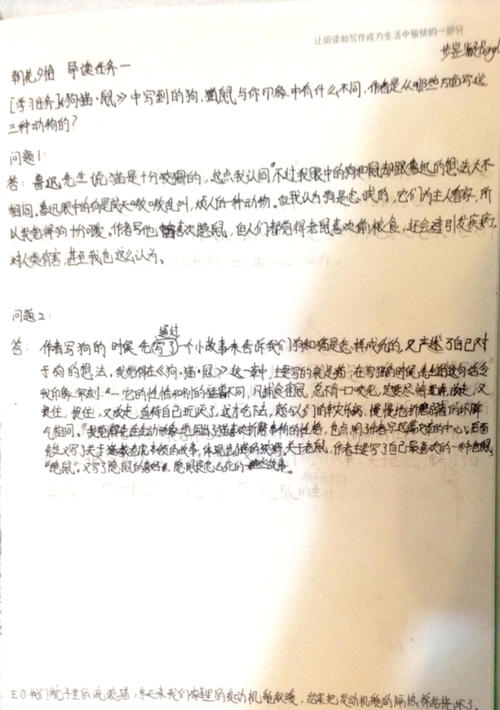 让阅读和写作成为生活中愉快的一部分
朝花夕拾 导读任务一
[学习任务]《狗·猫·鼠》中写到的狗、猫、鼠与你印象中有什么不同,作者是从哪些方面写这
三种动物的?
问题1:
答:鲁迅先生说猫是十分狡猾的,这点我认同,不过我眼中的狗和鼠却跟鲁迅的想法大不
相同。鲁迅眼中的狗是成天嗷嗷乱叫,烦人的一种动物。但我认为狗是忠诚的,它们为主人看家,所
以我觉得狗十分可爱。作者写他喜欢隐鼠,但人们都觉得老鼠喜欢偷粮食,还会引发疾病,
对人类有害,甚至我也这么认为。
问题2:
通过
答:作者写狗的时候先写了一个小故事来告诉我们狗和猫是怎样成仇的,又产生了自己对
于狗的想法,我觉得在《狗·猫·鼠》这一章中,主要写的就是猫,在写猫的时候
我印象深刻:"一、它的性情和别的猛兽不同,凡捕食雀鼠,总不肯一口咬死,定要尽情玩弄,放走,又
捉住,捉住,又放走,直待自己玩厌了,这才吃下去,颇与人们的幸灾乐祸,慢慢地折磨弱者的坏脾
气相同。"我觉得
写了关于的故事,体现出猫的狡猾,关于老鼠,作者主要写了自己最喜欢的一种老鼠,
"隐鼠",又写了隐鼠的,隐鼠是怎么死的故事。
我们院子里的流浪猫,冬天来我们家里的发动机舱取暖,结果把发动机舱的隔热棉给抓坏了。